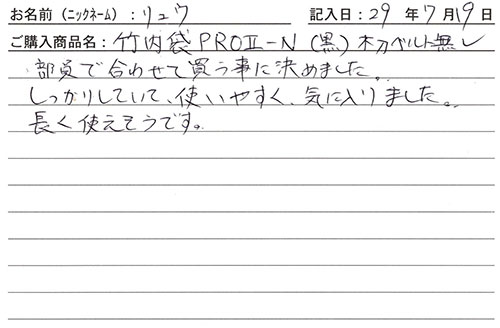 お名前（ニックネーム）：リュウ 記入日：29年7月19日
ご購入商品名：竹内袋PROⅡ-N（黒）木刀ベルト無し
部員で合わせて買う事に決めました。
しっかりしていて、使いやすく、気に入りました。
長く使えそうです。